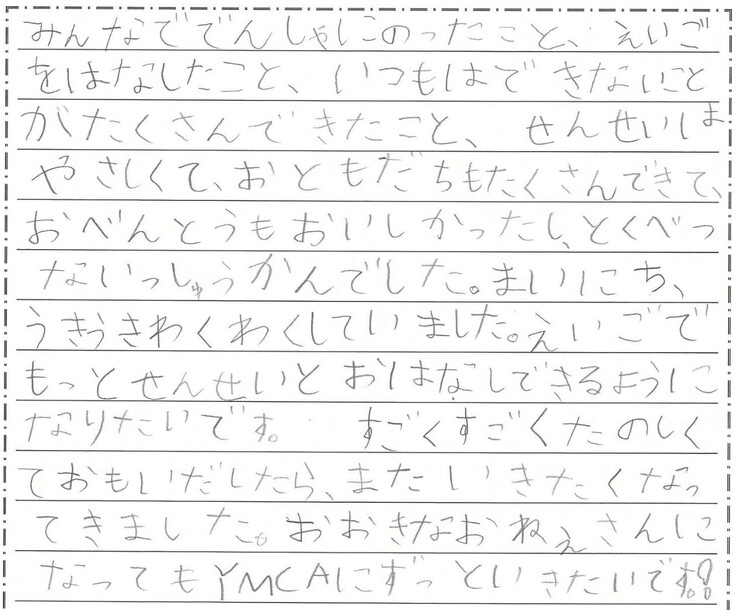 みんなででんしゃにのったこと、えいご
をはなしたこと、いつもはできないこと
がたくさんできたこと、せんせいは
やさしくて、おともだちもたくさんできて、
おべんとうもおいしかったし、とくべつ
ないっしゅうかんでした。まいにち、
うきうきわくわくしていました。えいごで
もっとせんせいとおはなしできるように
なりたいです。 すごくすごくたのしく
ておもいだしたら、またいきたくなっ
てきました。おおきなおねえさんに
なってもYMCAにずっといきたいです。!